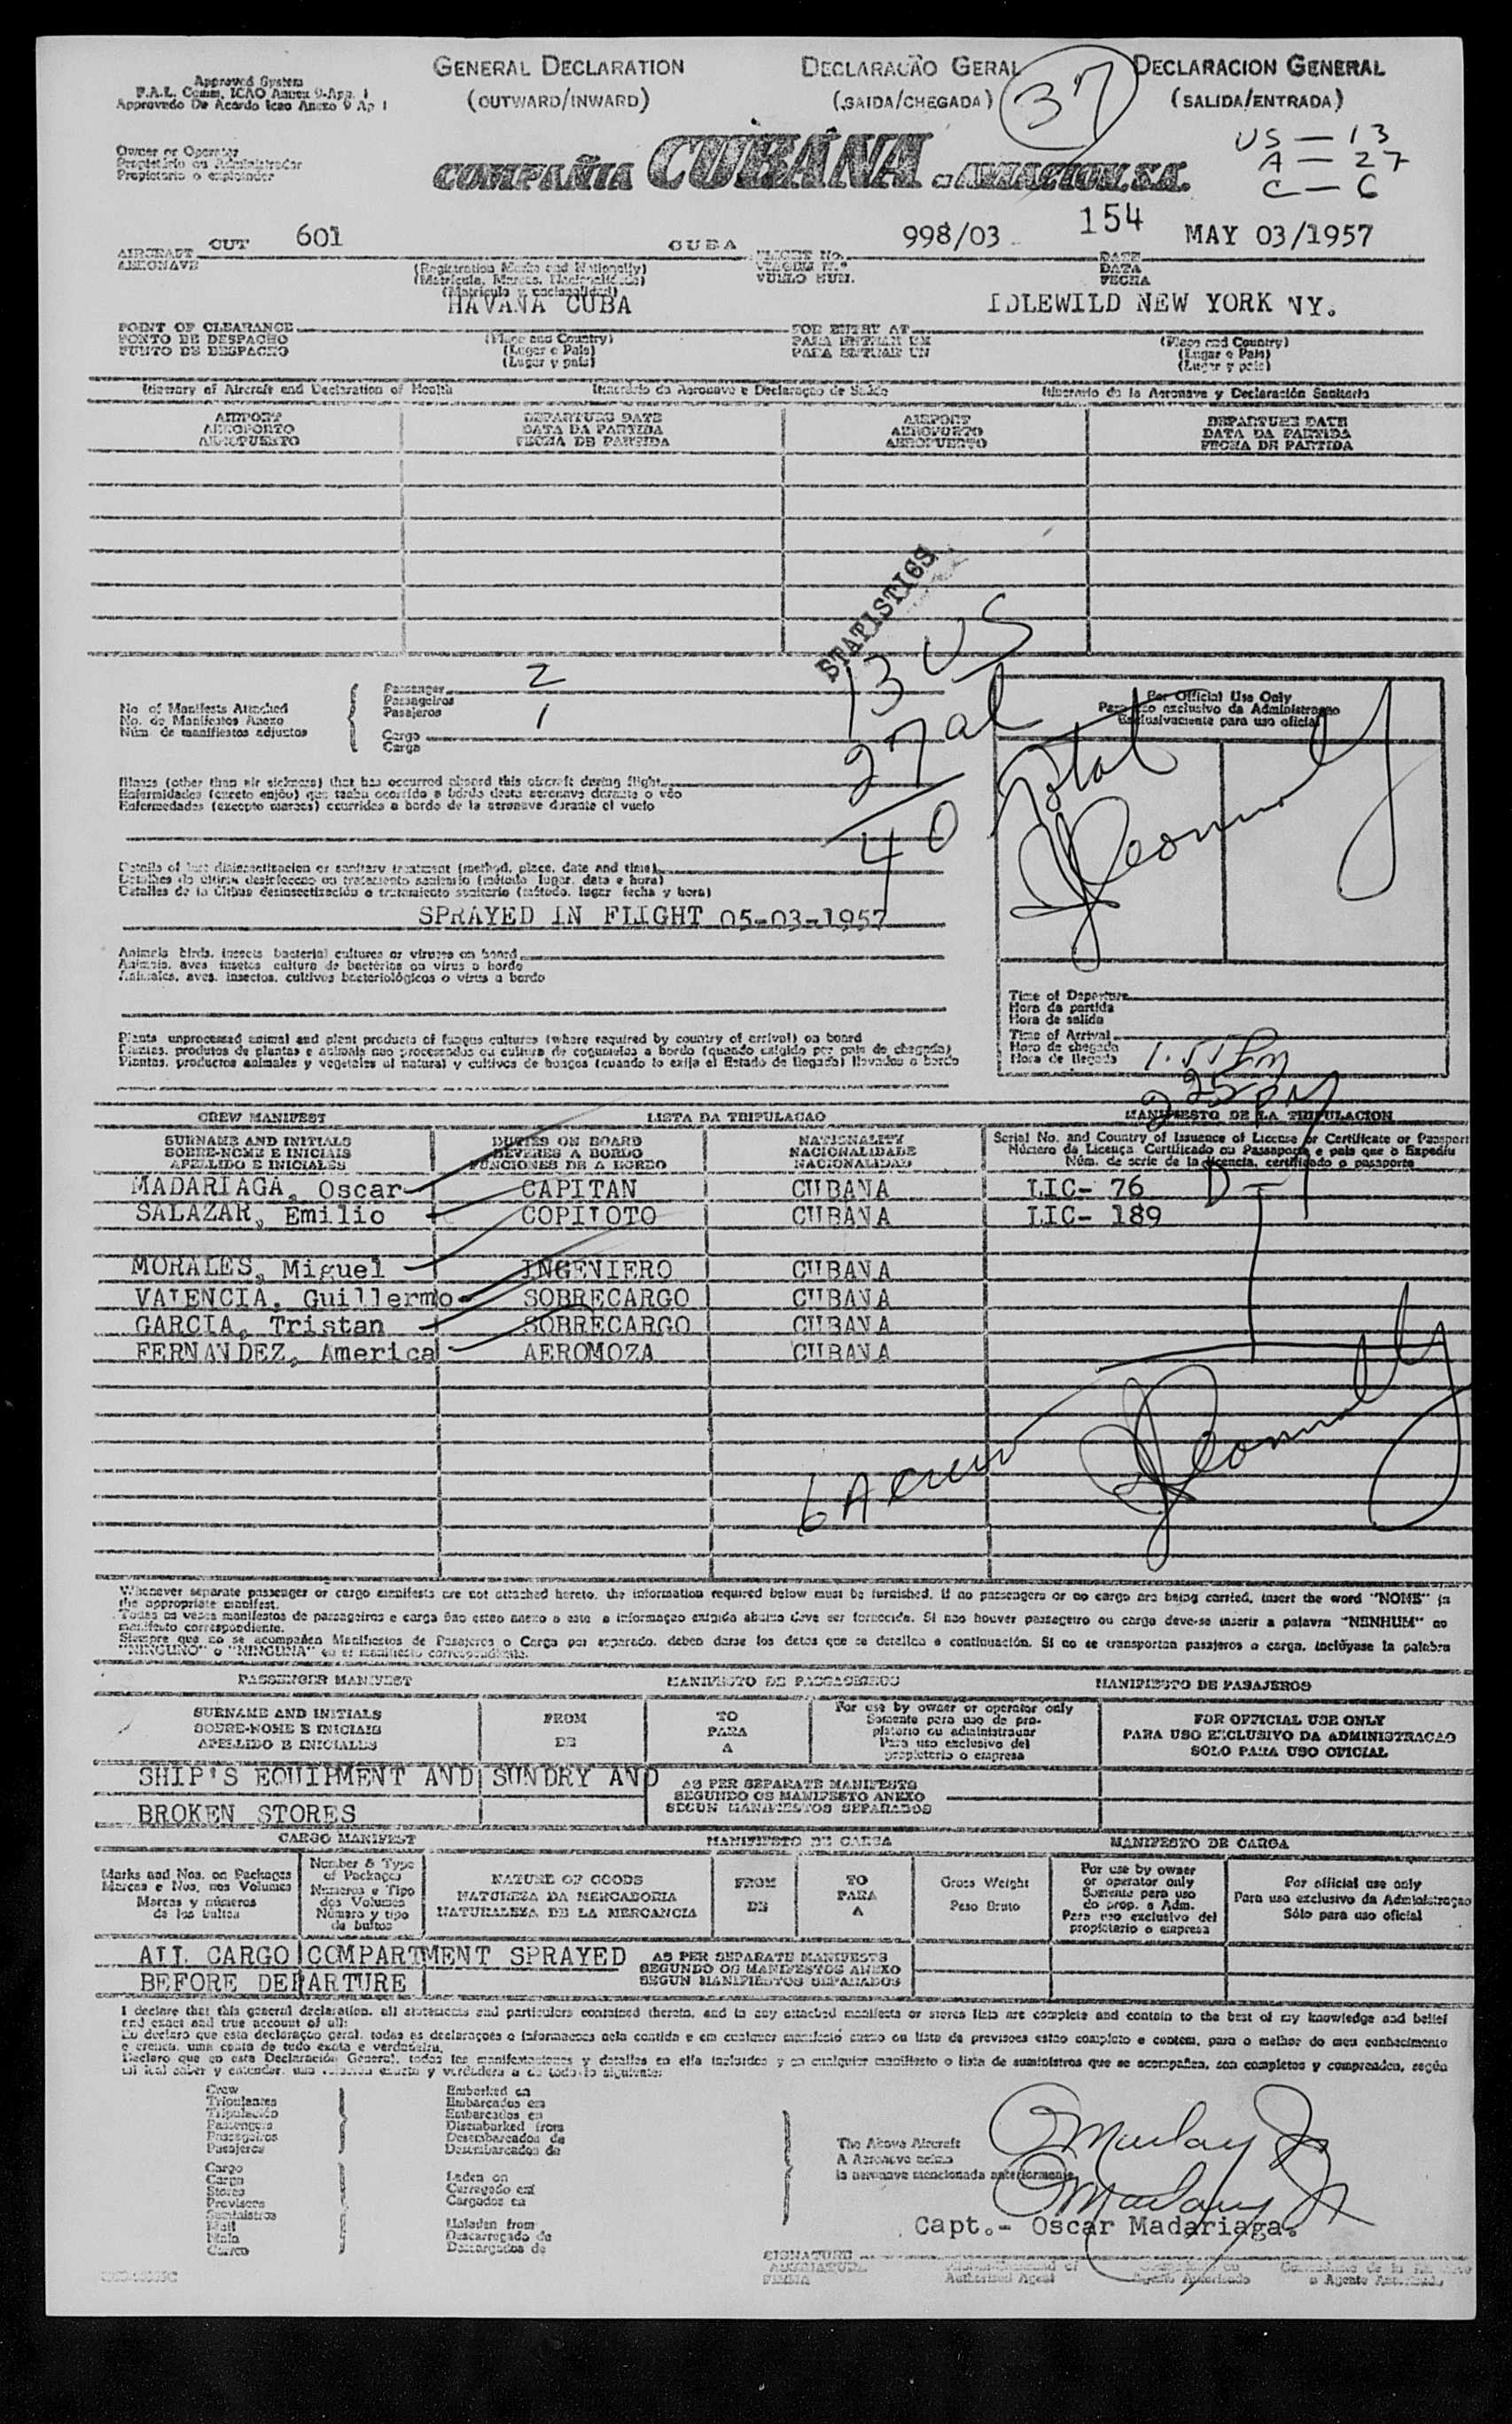 Approved System
F.A.L. Comm. ICAO Annex 9-App. 1
Approvado De Acordo Icao Anexo 9 Ap 1
GENERAL DECLARATION
(OUTWARD/INWARD)
DECLARAÇÃO GERAL
(SAIDA/CHEGADA)
37
DECLARACION GENERAL
(SALIDA/ENTRADA)
US - 13
A - 27
C - 6
Owner or Operator
Propietário ou Administrador
Propietario o explotador
COMPAÑIA CUBANA DE AVIACION, S.A.
AIRCRAFT CUT 601 CUBA
AERONAVE
(Registration Marks and Nationality)
(Matricula, Marcas, Nacionalidade)
(Matricula y nacionalidad)
FLIGHT No. 998/03 154
VIAGEM N.º
VUELO NUM.
DATE MAY 03/1957
DATA
FECHA
HAVANA CUBA
IDLEWILD NEW YORK NY.
POINT OF CLEARANCE
PONTO DE DESPACHO
PUNTO DE DESPACHO
(Place and Country)
(Lugar e Pais)
(Lugar y pais)
FOR ENTRY AT
PARA ENTRAR EM
PARA ENTRAR EN
(Place and Country)
(Lugar e Pais)
(Lugar y pais)
Itinerary of Aircraft and Declaration of Health
Itinerário da Aeronave e Declaração de Saúde
Itinerario de la Aeronave y Declaración Sanitaria
AIRPORT
AEROPORTO
AEROPUERTO
DEPARTURE DATE
DATA DA PARTIDA
FECHA DE PARTIDA
AIRPORT
AEROPORTO
AEROPUERTO
DEPARTURE DATE
DATA DA PARTIDA
FECHA DE PARTIDA
STATISTICS
13 US
27 al
40 Total
No of Manifests Attached
No. de Manifestos Anexo
Núm. de manifiestos adjuntos
Passenger 2
Passageiros
Pasajeros
Cargo 1
Carga
For Official Use Only
Para uso exclusivo da Administraçao
Exclusivamente para uso oficial
Illness (other than air sickness) that has occurred aboard this aircraft during flight
Enfermidades (exceto enjôo) que tenha ocorrido a bôrdo desta aeronave durante o vôo
Enfermedades (excepto mareos) ocurridas a bordo de la aeronave durante el vuelo
Details of last disinsectization or sanitary treatment (method, place, date and time)
Detalhes da última desinfecçao ou tratamento sanitario (método lugar, data e hora)
Detalles de la última desinsectización o tratamiento sanitario (método, lugar fecha y hora)
SPRAYED IN FLIGHT 05-03-1957
Animals birds, insects bacterial cultures or viruses on board
Animais, aves insetos cultura de bactérias ou virus a bordo
Animales, aves, insectos, cultivos bacteriológicos o virus a bordo
Plants unprocessed animal and plant products of fungus cultures (where required by country of arrival) on board
Plantas, produtos de plantas e animais nao processados ou cultura de cogumelos a bordo (quando exigido por pais de chegada)
Plantas, productos animales y vegetales al natural y cultivos de hongos (cuando lo exija el Estado de llegada) llevados a bordo
Time of Departure
Hora da partida
Hora de salida
Time of Arrival
Hora de chegada
Hora de llegada
225 PM
CREW MANIFEST
LISTA DA TRIPULACAO
MANIFIESTO DE LA TRIPULACION
SURNAME AND INITIALS
SOBRE-NOME E INICIAIS
APELLIDO E INICIALES
DUTIES ON BOARD
DEVERES A BORDO
FUNCIONES DE A BORDO
NATIONALITY
NACIONALIDADE
NACIONALIDAD
Serial No. and Country of Issuance of License or Certificate or Passport
Número da Licença Certificado ou Passaporte e pais que o Expediu
Núm. de serie de la licencia, certificado o pasaporte
MADARIAGA, Oscar CAPITAN CUBANA LIC- 76 D-1
SALAZAR, Emilio COPILOTO CUBANA LIC- 189
MORALES, Miguel INGENIERO CUBANA
VALENCIA, Guillermo SOBRECARGO CUBANA
GARCIA, Tristan SOBRECARGO CUBANA
FERNANDEZ, America AEROMOZA CUBANA
6 A crew
Whenever separate passenger or cargo manifests are not attached hereto, the information required below must be furnished. If no passengers or no cargo are being carried, insert the word "NONE" in
the appropriate manifest.
Todas as vezes manifestos de passageiros e carga nao estao anexo a este a informaçao exigida abaixo deve ser fornecida. Si nao houver passageiro ou carga deve-se inserir a palavra "NENHUM" no
manifesto correspondente.
Siempre que no se acompañen Manifiestos de Pasajeros o Carga por separado, deben darse los datos que se detallan a continuación. Si no se transportan pasajeros o carga, inclúyase la palabra
"NINGUNO" o "NINGUNA" en el manifiesto correspondiente.
PASSENGER MANIFEST
MANIFESTO DE PASSAGEIROS
MANIFIESTO DE PASAJEROS
SURNAME AND INITIALS
SOBRE-NOME E INICIAIS
APELLIDO E INICIALES
FROM
DE
TO
PARA
A
For use by owner or operator only
Somente para uso de pro-
pietario ou administrador
Para uso exclusivo del
propietario o empresa
FOR OFFICIAL USE ONLY
PARA USO EXCLUSIVO DA ADMINISTRACAO
SOLO PARA USO OFICIAL
SHIP'S EQUIPMENT AND SUNDRY AND
BROKEN STORES
AS PER SEPARATE MANIFESTS
SEGUNDO OS MANIFESTO ANEXO
SEGUN MANIFIESTOS SEPARADOS
CARGO MANIFEST
MANIFIESTO DE CARGA
MANIFESTO DE CARGA
Marks and Nos. on Packages
Marcas e Nos. nos Volumes
Marcas y números
de los bultos
Number & Type
of Packages
Numeros e Tipo
dos Volumes
Número y tipo
de bultos
NATURE OF GOODS
NATUREZA DA MERCADORIA
NATURALEZA DE LA MERCANCIA
FROM
DE
TO
PARA
A
Gross Weight
Peso Bruto
For use by owner
or operator only
Somente para uso
do prop. o Adm.
Para uso exclusivo del
propietario o empresa
For official use only
Para uso exclusivo da Administraçao
Sólo para uso oficial
ALL CARGO COMPARTMENT SPRAYED
BEFORE DEPARTURE
AS PER SEPARATE MANIFESTS
SEGUNDO OS MANIFESTOS ANEXO
SEGUN MANIFIESTOS SEPARADOS
I declare that this general declaration, all statements and particulars contained therein, and in any attached manifests or stores lists are complete and contain to the best of my knowledge and belief
and exact and true account of all:
Eu declaro que esta declaraçao geral, todas as declaraçoes e informacoes nela contida e em cualquer manifesto anexo ou lista de previsoes estao completo e contem, para o melhor do meu conhecimento
e crencia, uma conta de tudo exata e verdadeira.
Declaro que en esta Declaración General, todas las manifestaciones y detalles en ella incluidos y en cualquier manifiesto o lista de suministros que se acompañen, son completos y comprenden, según
Crew
Tripulantes
Tripulación
Passengers
Passageiros
Pasajeros
Embarked on
Embarcados em
Embarcados en
Disembarked from
Desembarcados de
Desembarcados de
Cargo
Carga
Stores
Previsoes
Suministros
Mail
Mala
Correo
Laden on
Carregado em
Cargados en
Unladen from
Descarregado de
Descargados de
The Above Aircraft
A Aeronave acima
la aeronave mencionada anteriormente
Capt.- Oscar Madariaga.
SIGNATURE
ASSINATURA
FIRMA
Authorized Agent
Agente Autorizado
o Agente Autorizado